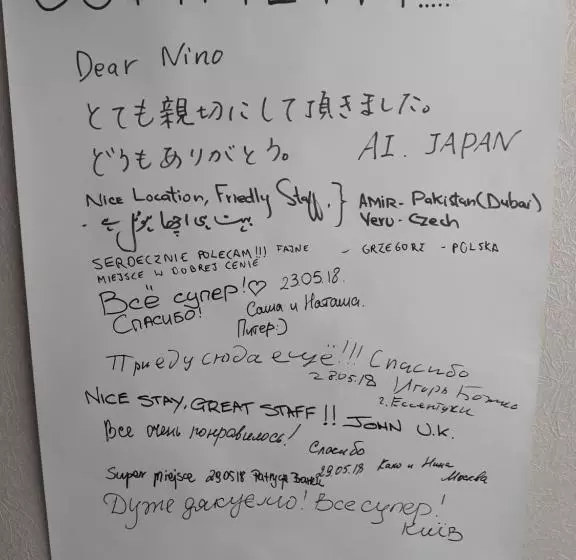 Dear Nino
とても親切にして頂きました。
どうもありがとう。 AI. JAPAN
Nice Location, Friedly Staff. } AMIR - Pakistan (Dubai)
بہت ہی اچھا ہوٹل ہے - Veru - Czech
SERDECZNIE POLECAM!!! FAJNE - GRZEGORZ - POLSKA
MIEJSCE W DOBREJ CENIE
Всё супер!♡ 23.05.18.
Спасибо! Саша и Наташа.
Питер:)
Приеду сюда ещё!!! Спасибо
28.05.18 Игорь Божко
г. Ессентуки
NICE STAY, GREAT STAFF!! JOHN U.K.
Все очень понравилось! Спасибо
29.05.18 и Нина Москва
Super miejsce 29.05.18
Дуже дякуємо! Все супер!
Київ